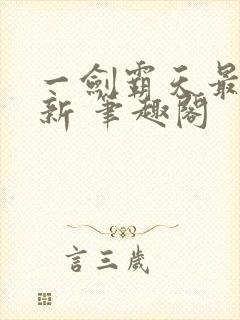 一劍霸天最
新 筆趣閣
言三歲